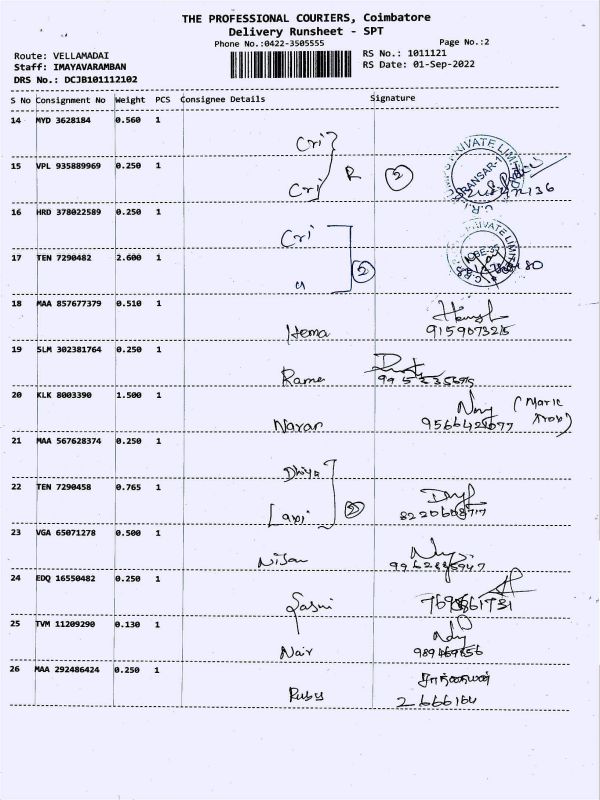 THE PROFESSIONAL COURIERS, Coimbatore
Delivery Runsheet - SPT
Phone No.:0422-3505555
Page No.:2
Route: VELLAMADAI
RS No.: 1011121
Staff: IMAYAVARAMBAN
RS Date: 01-Sep-2022
DRS No.: DCJB101112102
S No Consignment No Weight PCS Consignee Details Signature
14 MYD 3628184 0.560 1
Cri
15 VPL 935889969 0.250 1
Cri R 2
PRIVATE LIMITED
16 HRD 378022589 0.250 1
Cri
PRIVATE LIMITED
17 TEN 7290482 2.600 1
2
18 MAA 857677379 0.510 1
Hema 9159073215
19 SLM 302381764 0.250 1
Rame
20 KLK 8003390 1.500 1
Naran
21 MAA 567628374 0.250 1
Dhiya
22 TEN 7290458 0.765 1
Laxi 2
23 VGA 65071278 0.500 1
Nisan
24 EDQ 16550482 0.250 1
Sasui
25 TVM 11209290 0.130 1
Nair
26 MAA 292486424 0.250 1
Ruby
2666164